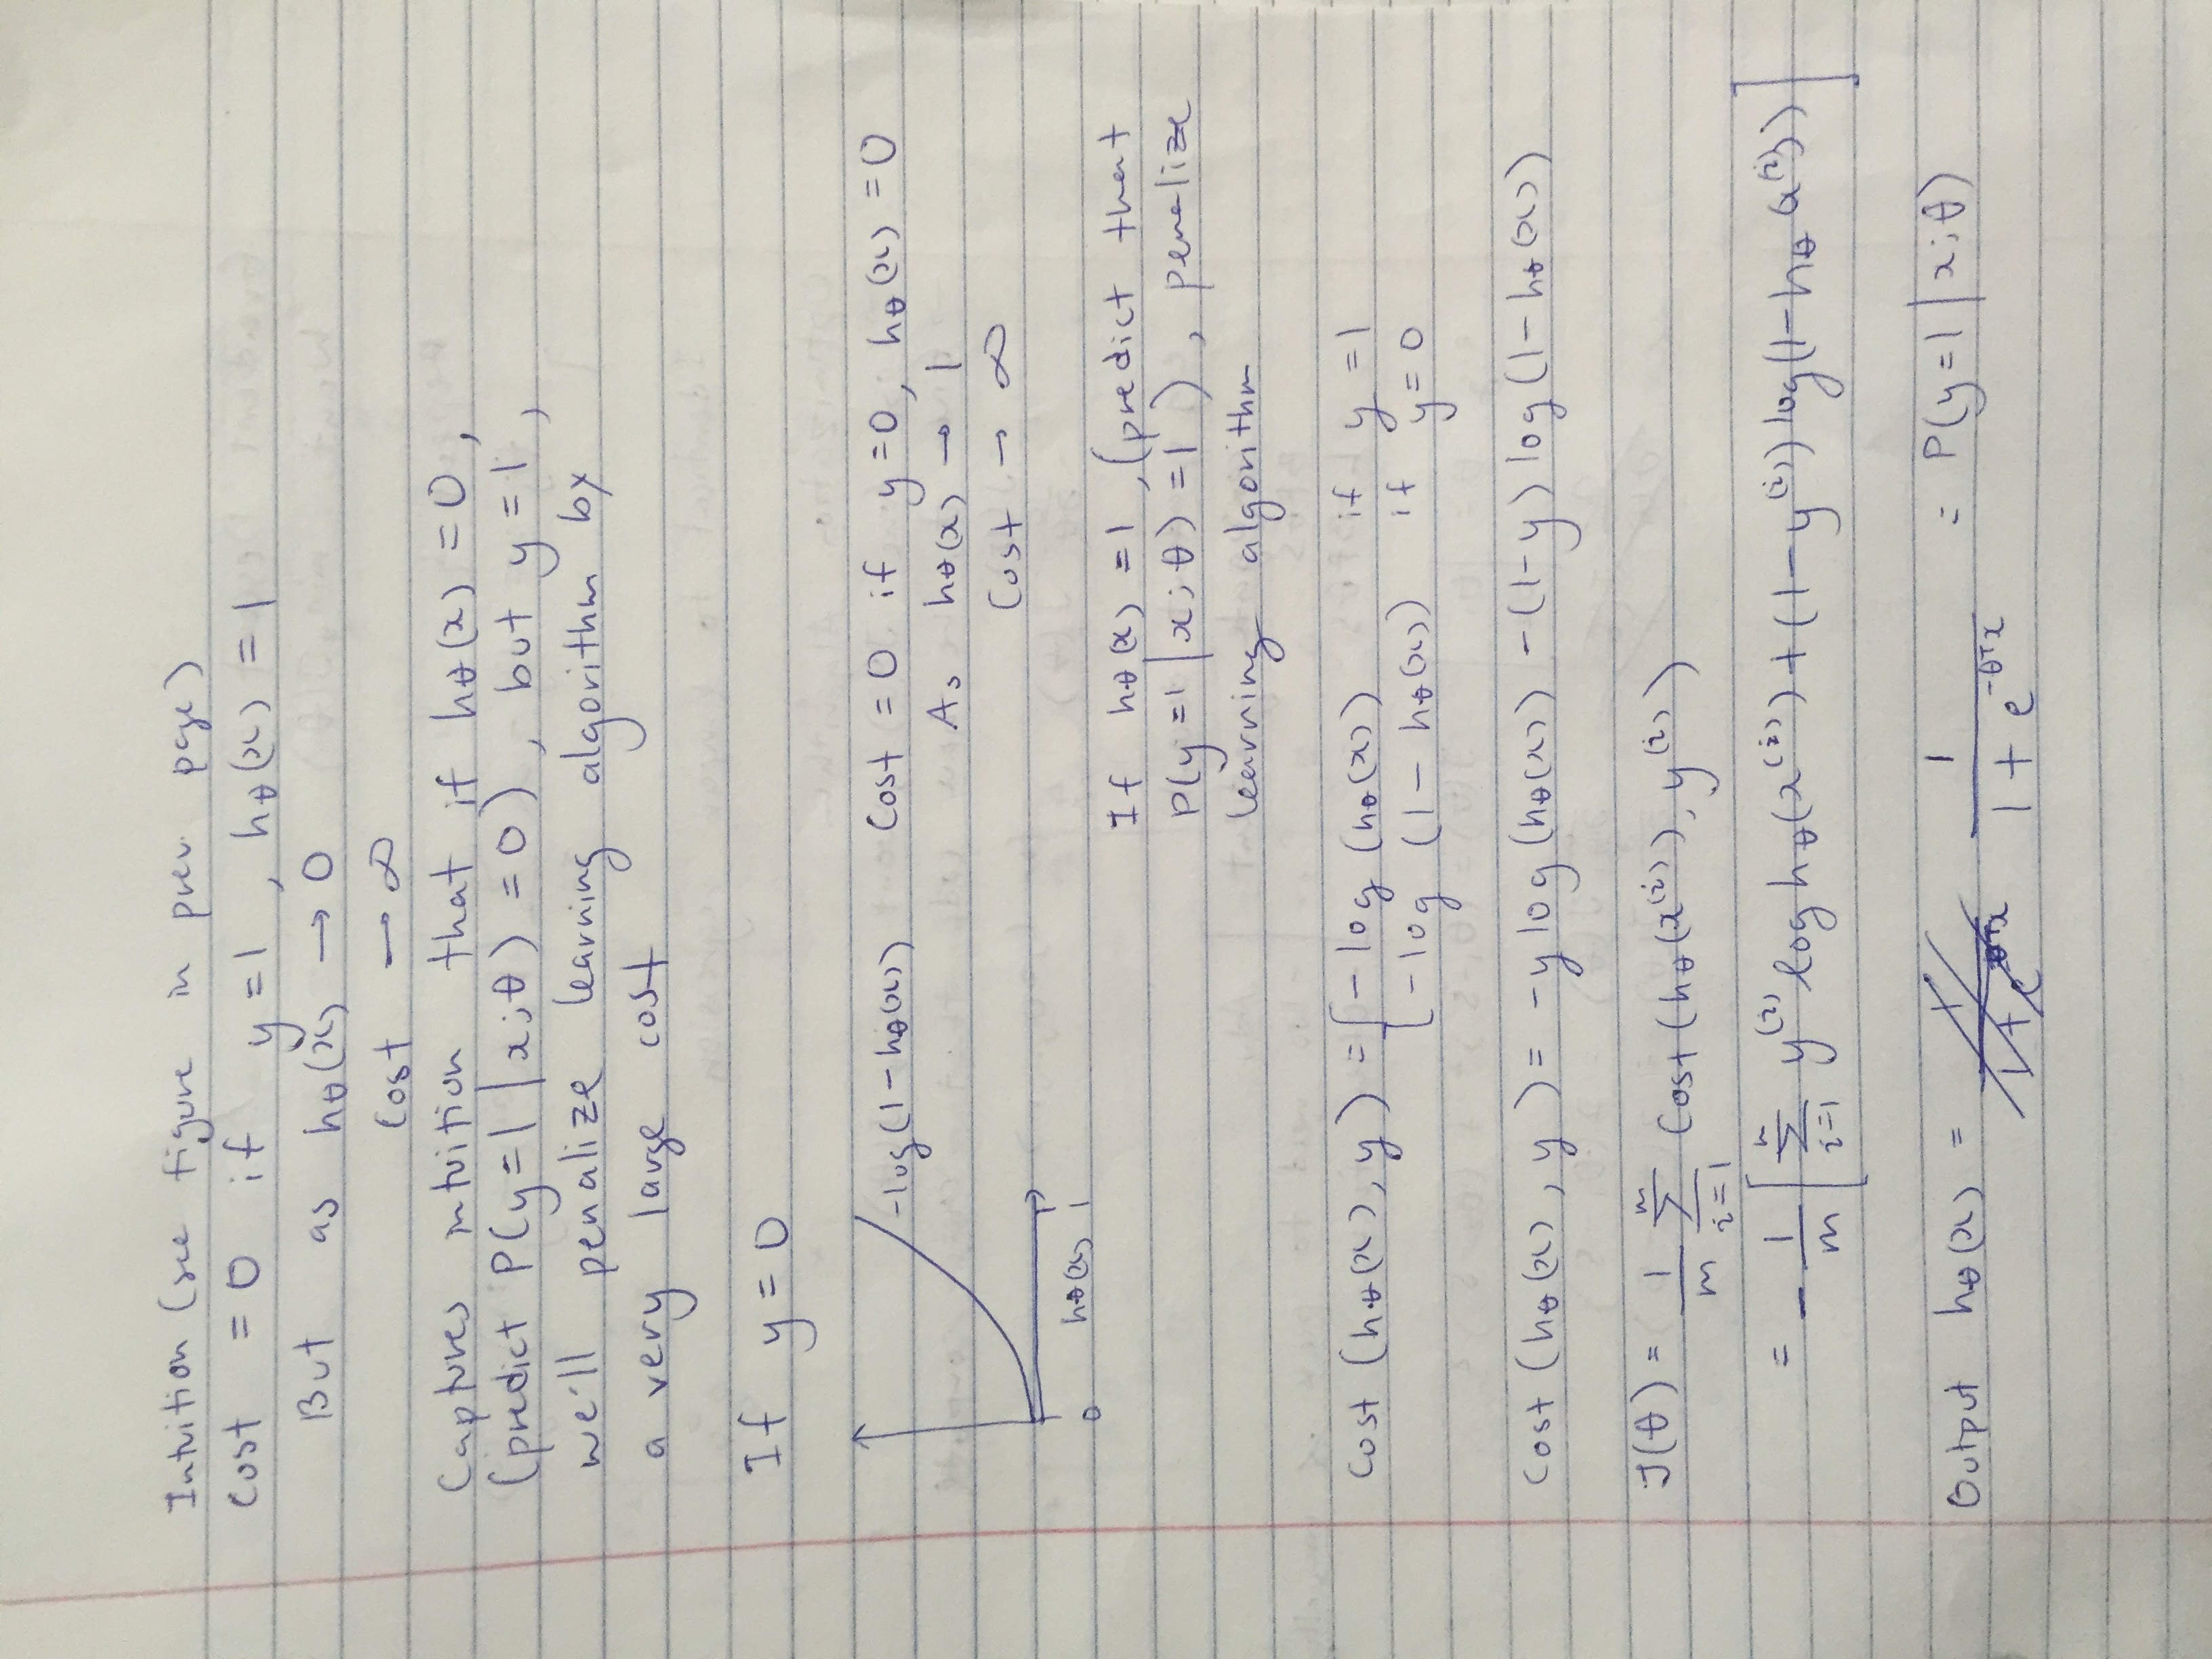 Intuition (see figure in prev. page)
Cost = 0 if y = 1, hθ(x) = 1
But as hθ(x) → 0
Cost → ∞
Captures intuition that if hθ(x) = 0,
(predict P(y=1|x;θ) = 0), but y = 1,
we'll penalize learning algorithm by
a very large cost
If y = 0
-log(1-hθ(x))
0 hθ(x) 1
Cost = 0 if y=0, hθ(x) = 0
As hθ(x) → 1
Cost → ∞
If hθ(x) = 1, (predict that
P(y=1|x;θ) = 1), penalize
learning algorithm
Cost (hθ(x), y) = [-log (hθ(x)) if y = 1
[-log (1 - hθ(x)) if y = 0
Cost (hθ(x), y) = -y log (hθ(x)) - (1-y) log (1-hθ(x))
J(θ) = 1/m Σ_{i=1}^{m} Cost (hθ(x⁽ⁱ⁾), y⁽ⁱ⁾)
= -1/m [Σ_{i=1}^{m} y⁽ⁱ⁾ log hθ(x⁽ⁱ⁾) + (1-y⁽ⁱ⁾) log(1-hθ(x⁽ⁱ⁾))]
Output hθ(x) = 1/(1 + e^{-θᵀx}) = P(y=1|x;θ)